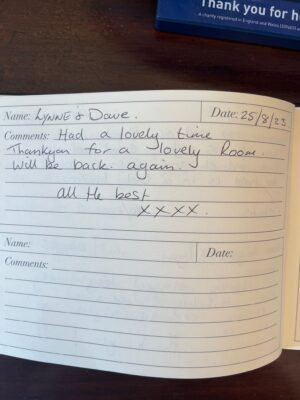 Thank you for h
A charity registered in England and Wales
Name: LYNNE & Dave.
Date: 25/8/23
Comments: Had a lovely time
Thankyou for a lovely Room.
Will be back again.
all the best
xxxx.
Name:
Date:
Comments: